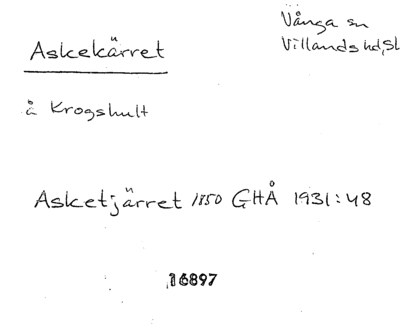 Askekärret
Vånga sn
Villands hd, Sk
å Krogshult
Asketjärret 1850 GHÅ 1931:48
16897